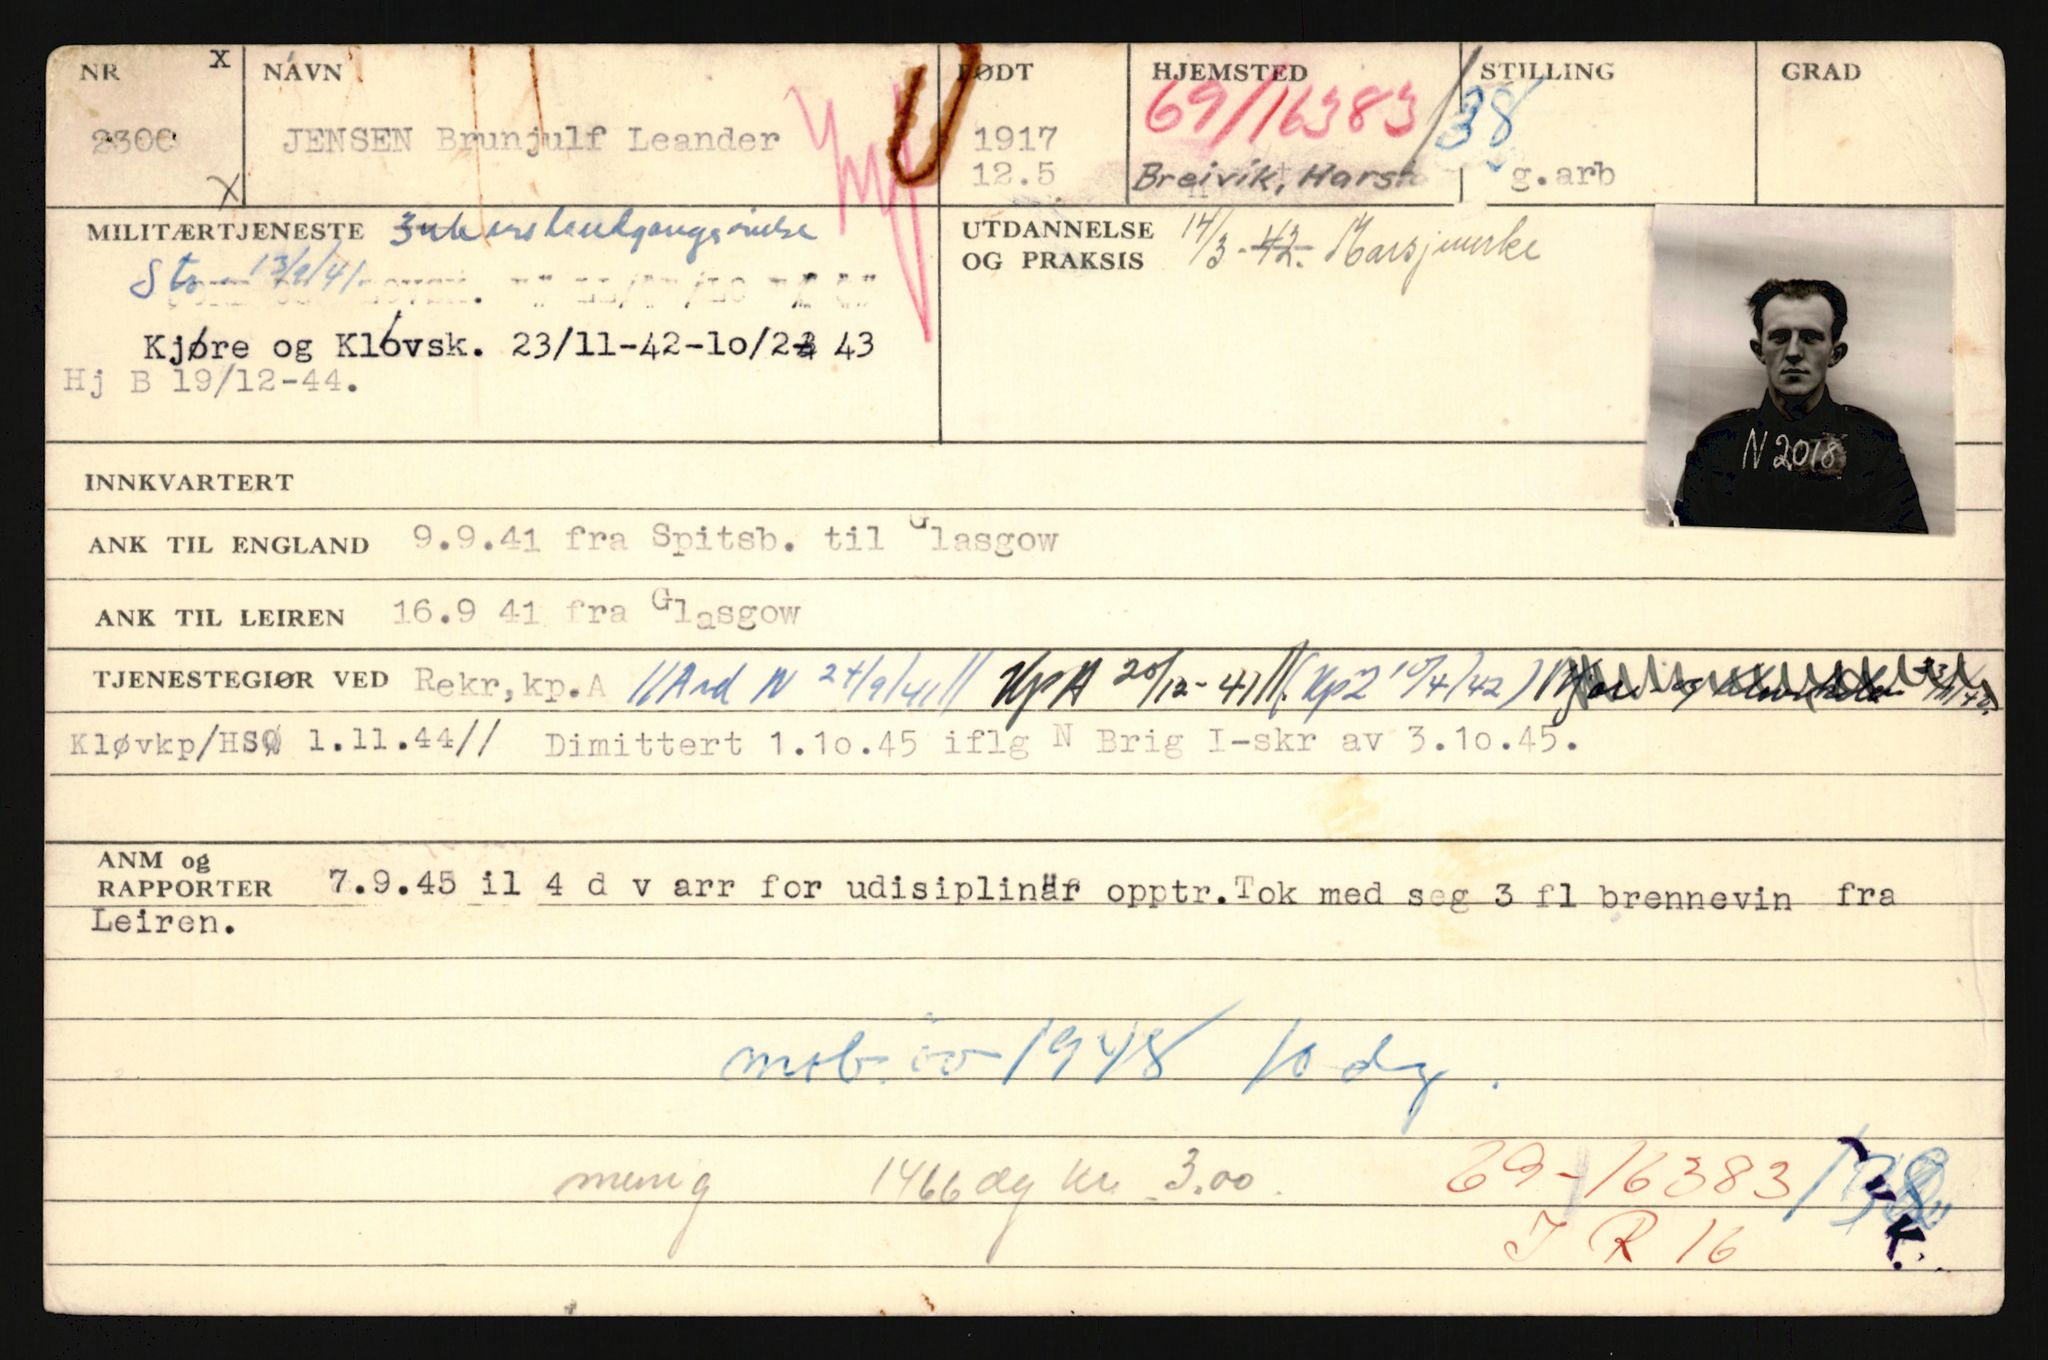 NR x NAVN FØDT HJEMSTED STILLING GRAD
69/16383/38
2306 JENSEN Brunjulf Leander 1917
X 12.5 Breivik, Harst g.arb
MILITÆRTJENESTE
13/9/41
Kjøre og Kløvsk. 23/11-42-10/2 43
Hj B 19/12-44.
UTDANNELSE OG PRAKSIS 14/3-42. Marsjmerke
N 2018
INNKVARTERT
ANK TIL ENGLAND 9.9.41 fra Spitsb. til Glasgow
ANK TIL LEIREN 16.9 41 fra Glasgow
TJENESTEGJØR VED Rekr,kp.A // Avd N 24/9/41 // Kp A 20/12-41 // (Kp 2 10/4/42)
Kløvkp/HSØ 1.11.44// Dimittert 1.10.45 iflg N Brig I-skr av 3.10.45.
ANM og
RAPPORTER 7.9.45 il 4 d v arr for udisiplinær opptr.Tok med seg 3 fl brennevin fra
Leiren.
mob. øv 1948 10 dg.
menig 1466 dg kr. 3.00.
69-16383/38
I R 16
K.